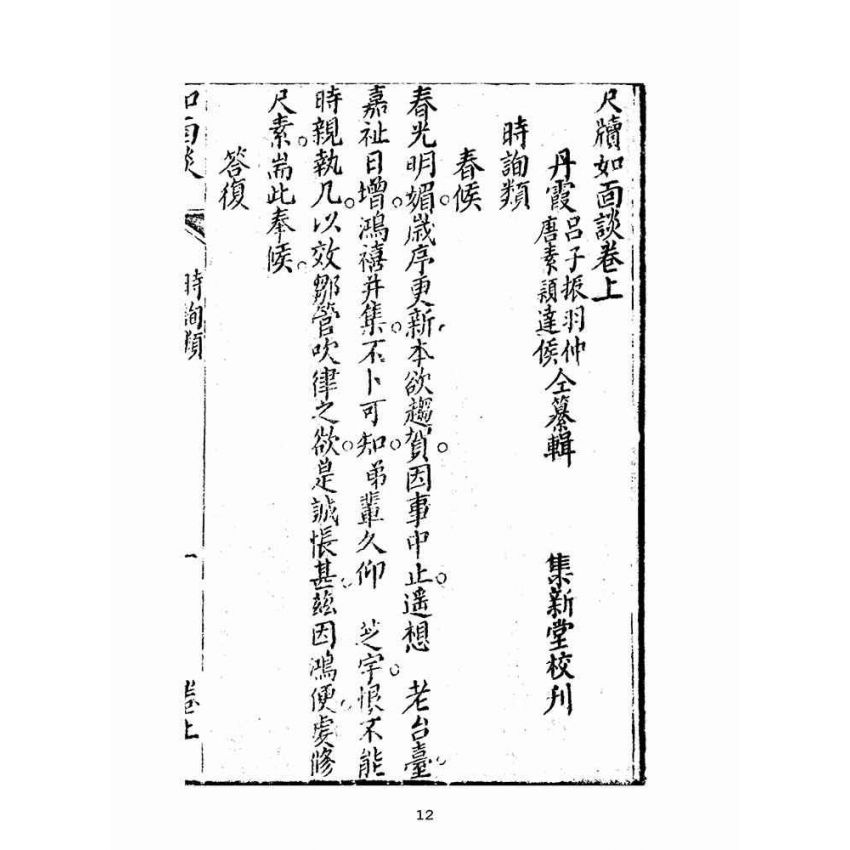 尺牘如面談卷上
丹霞呂子振羽仲
唐素穎達侯
仝纂輯
集新堂校刋
時詢類
春候
春光明媚。歲序更新。本欲趨賀。因事中止。遥想 老台臺。
嘉祉日增。鴻禧并集。不卜可知。弟輩久仰 芝宇。恨不能
時親執几。以效鄒管吹律之欲。是誠悵甚。兹因鴻便。虔修
尺素。耑此奉候。
答復
如面談
時詢類
一
卷上
12